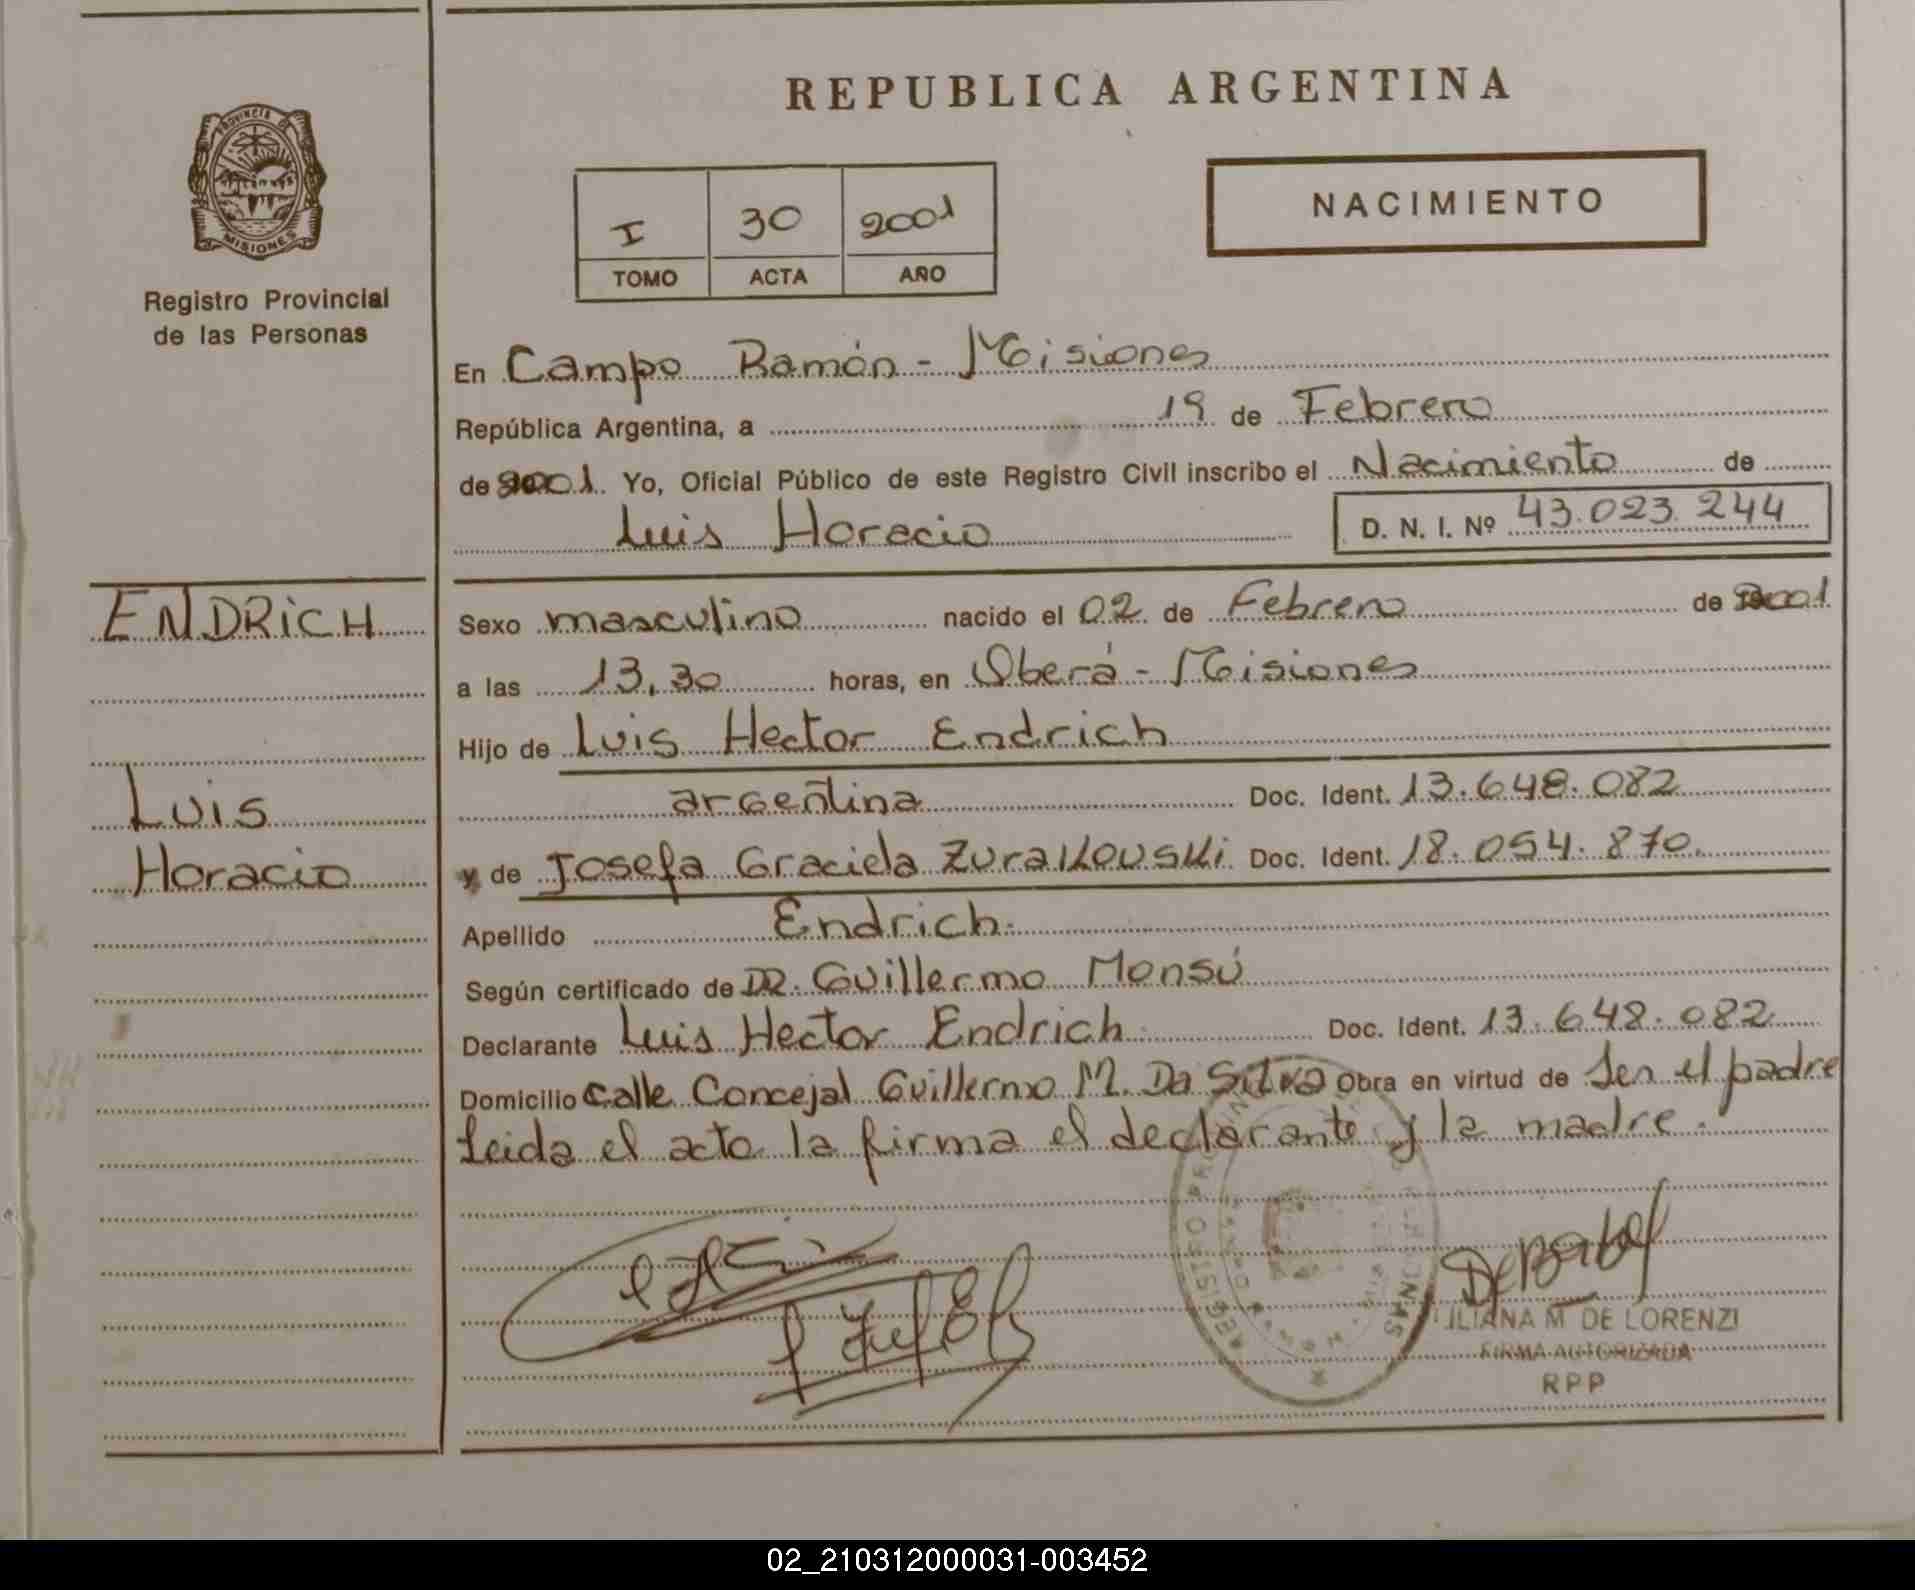 REPUBLICA ARGENTINA
PROVINCIA DE
MISIONES
Registro Provincial
de las Personas
I 30 2001
TOMO ACTA AÑO
NACIMIENTO
En Campo Ramón - Misiones
República Argentina, a 19 de Febrero
de 2001. Yo, Oficial Público de este Registro Civil inscribo el Nacimiento de
Luis Horacio
D. N. I. Nº 43.023.244
ENDRiCH
Luis
Horacio
Sexo masculino nacido el 02 de Febrero de 2001
a las 13,30 horas, en Oberá - Misiones
Hijo de Luis Hector Endrich
argentina Doc. Ident. 13.648.082
y de Josefa Graciela Zuraikouski Doc. Ident. 18.054.870.
Apellido Endrich.
Según certificado de DR. Guillermo Monsú
Declarante Luis Hector Endrich Doc. Ident. 13.648.082
Domicilio Calle Concejal Guillermo M. Da Silva Obra en virtud de Ser el padre
Leida el acto la firma el declarante y la madre.
LILIANA M DE LORENZI
FIRMA AUTORIZADA
RPP
02_210312000031-003452